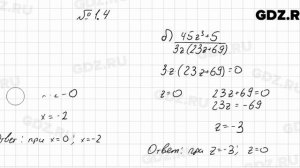 GDZ.RU
№ 1.4
б) 45z³+5
3z(23z+69)
3z(23z+69)=0
z=0 23z+69=0
23z = -69
z=-3
Ответ: при z=-3; z=0
x = -2
при x=0; x=-2